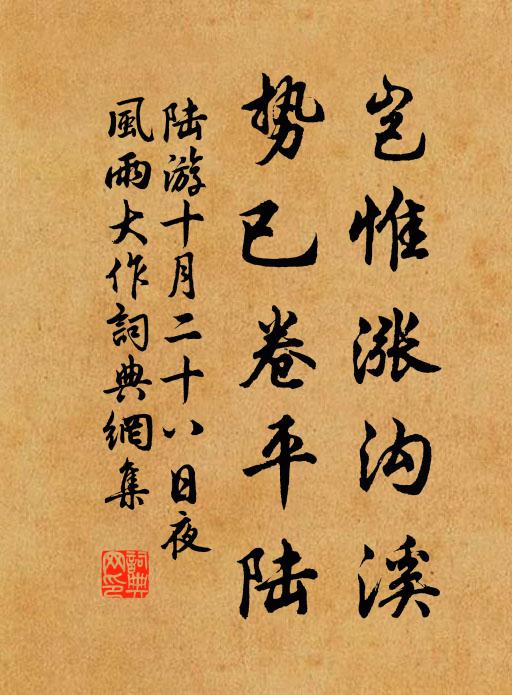 岂惟涨沟溪
势已卷平陆
陆游十月二十八日夜
風雨大作詞典網集
詞典网印